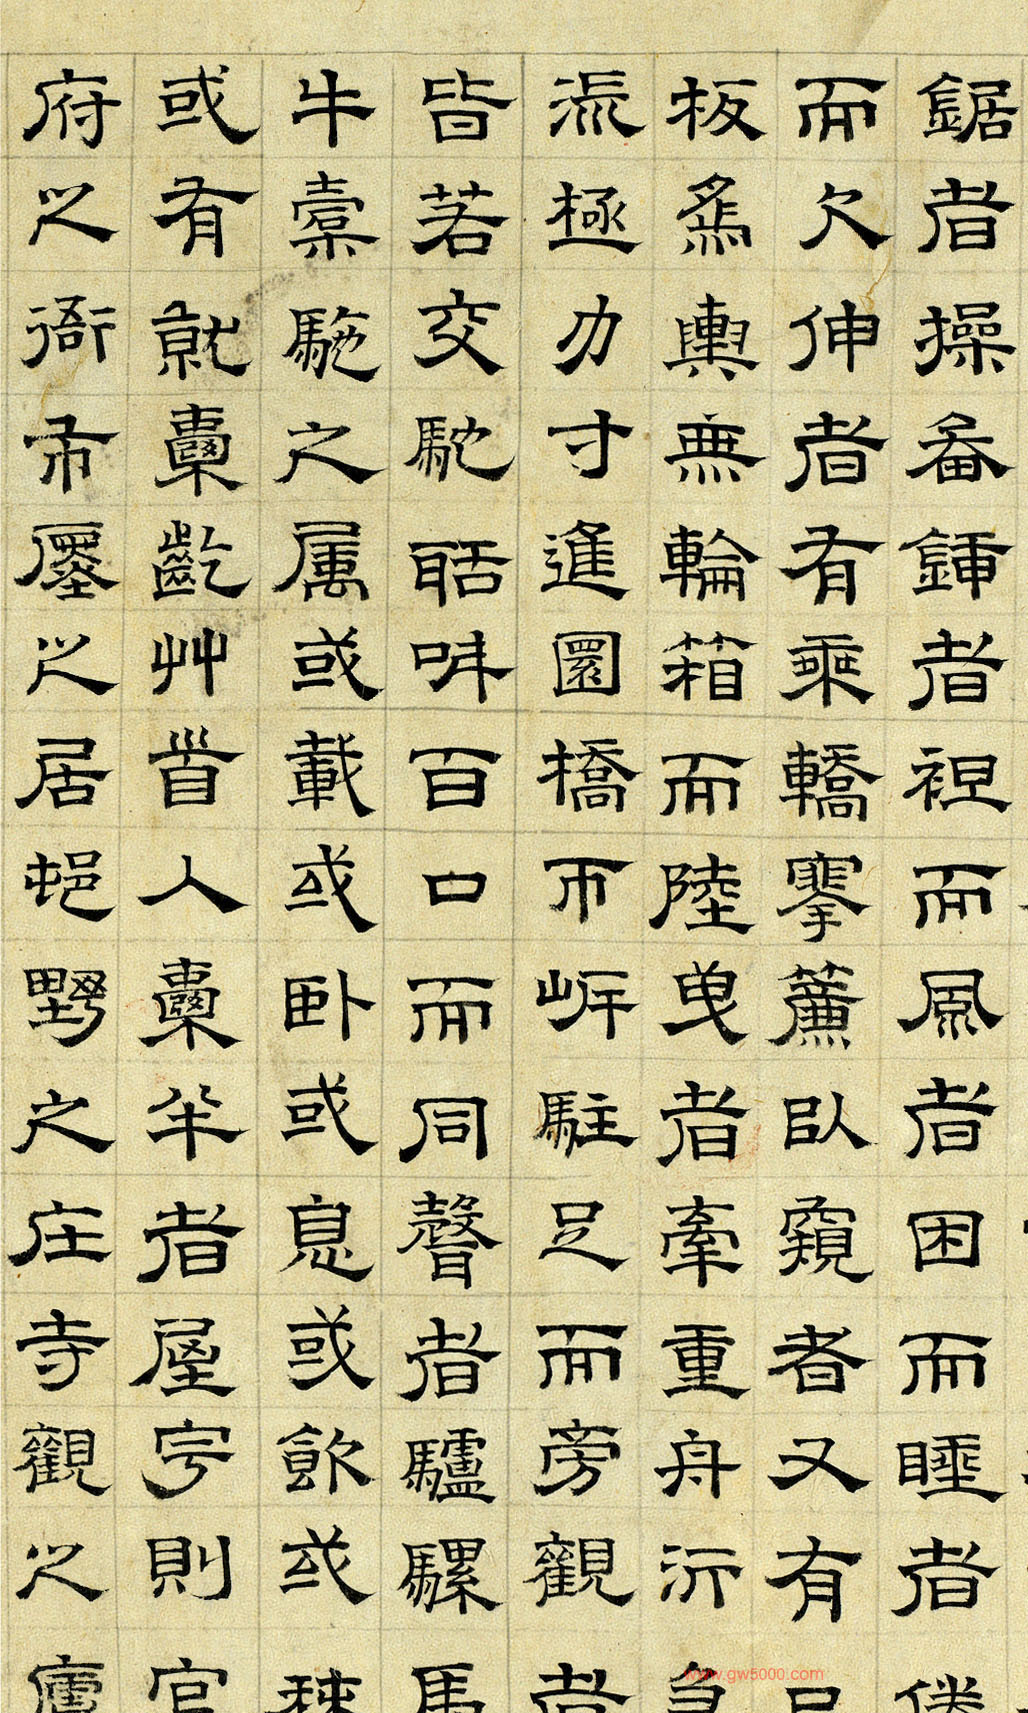 鋸者操畚鍤者裎而風者困而睡者倦
而欠伸者有乘轎搴簾以窺者又有以
板為輿無輪箱而陸曳者牽重舟泝急
流極力寸進圜橋匝岸駐足而旁觀者
皆若交駞聒叫百口而同聲者驢騾馬
牛橐駞之属或載或臥或息或飲或秣
或有就囊齕艸首入囊半者屋宇則官
府之衙市廛之居邨野之庄寺觀之廬
www.gw5000.com